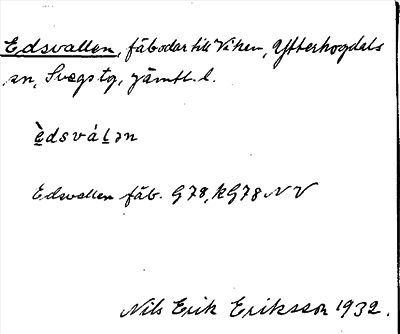 Edsvallen, fäbodar till Viken, Ytterhogdals
sn, Svegs tg, Jämtl. l.
è̲dsvál̲ən
Edsvallen fäb. G78, RG78 NV
Nils Erik Eriksson 1932.